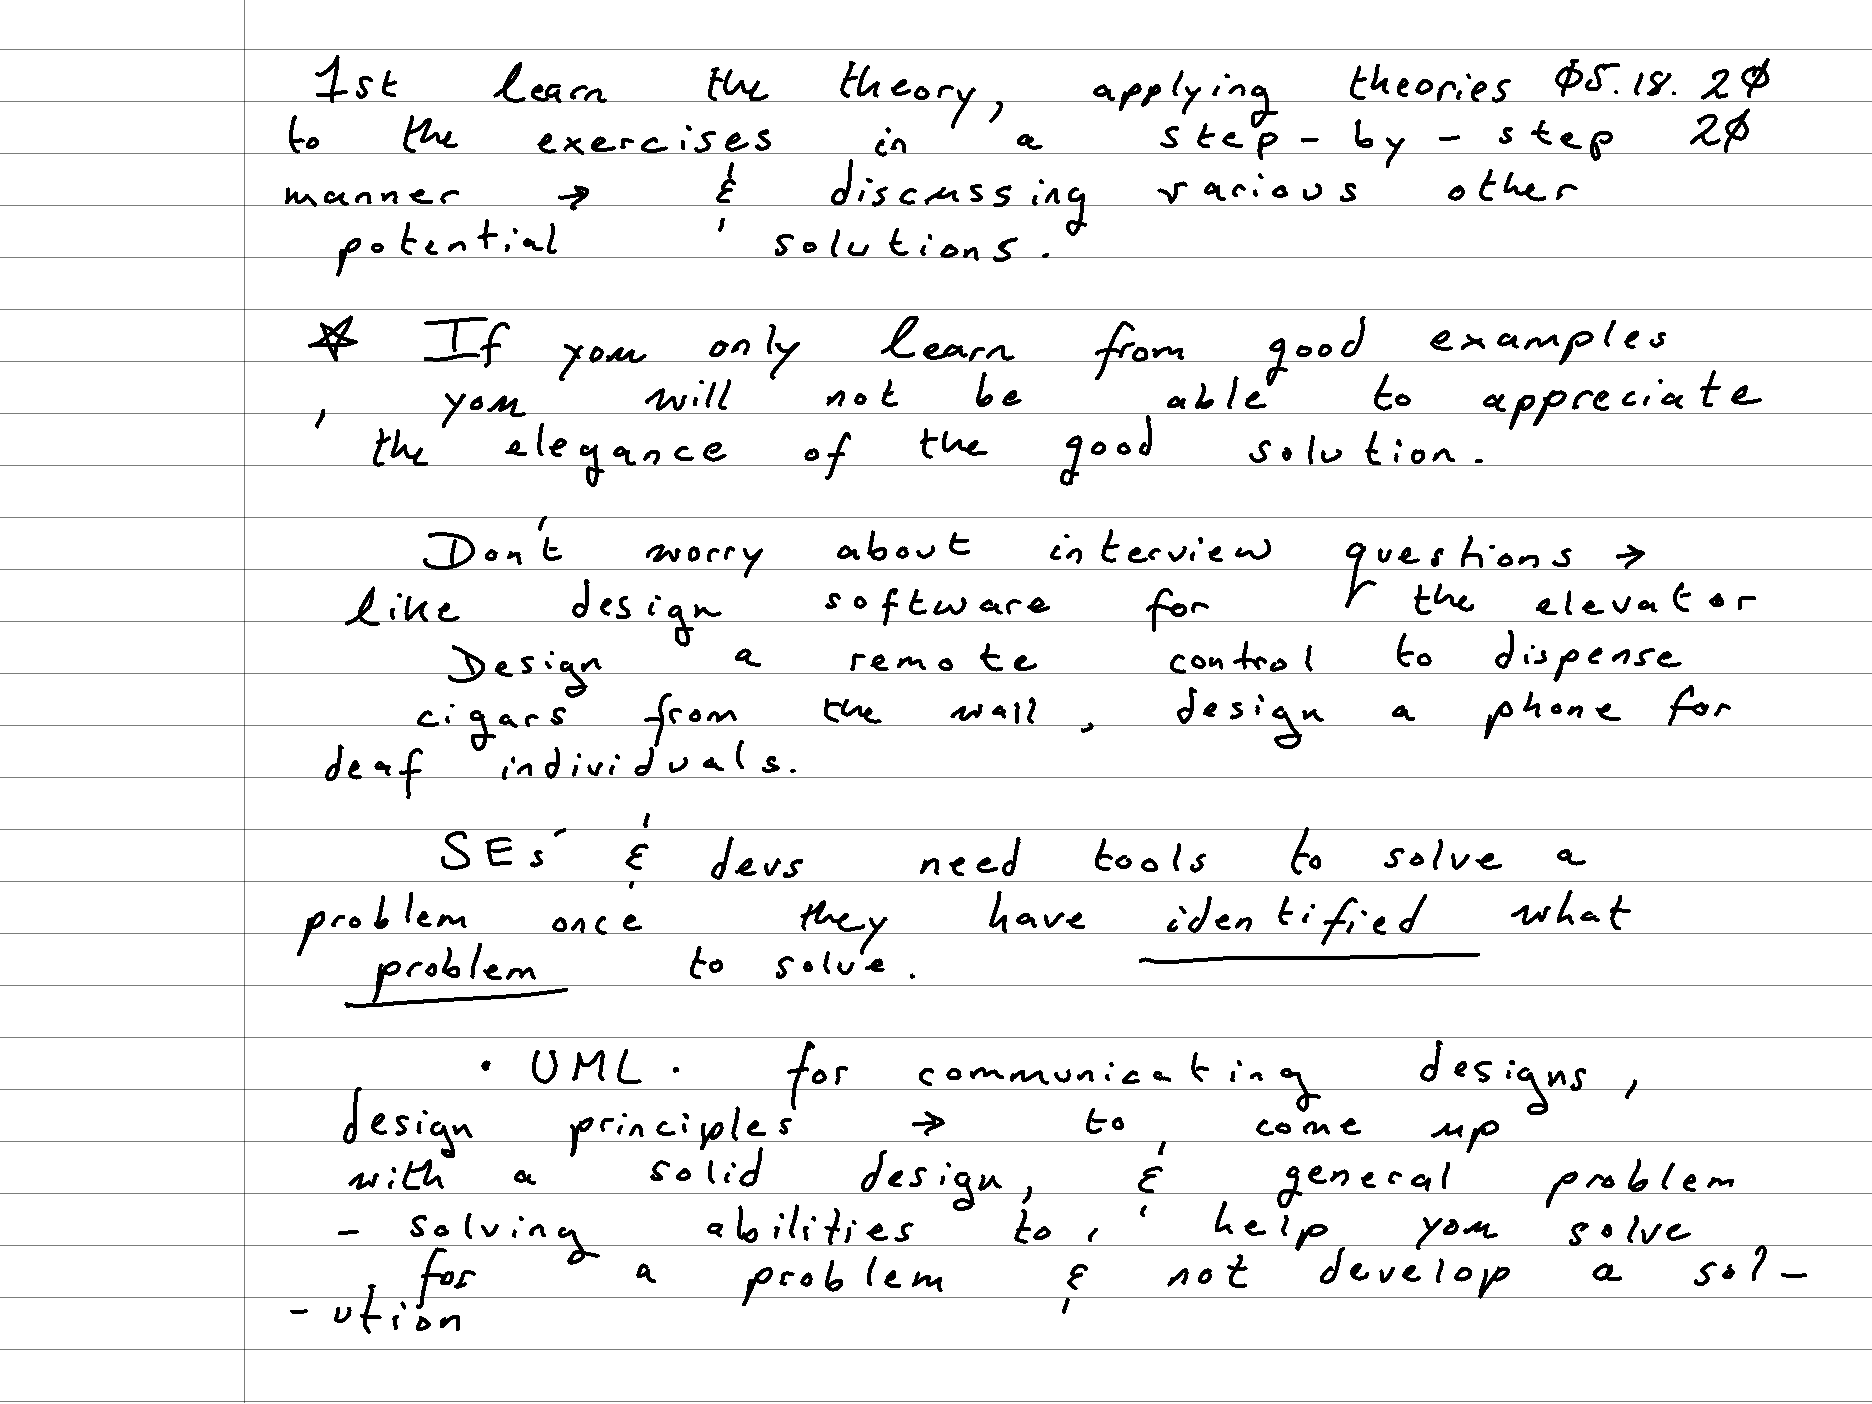 1st learn the theory, applying theories 05.18.20
to the exercises in a step-by-step 20
manner → & discussing various other
potential solutions.
☆ If you only learn from good examples
, you will not be able to appreciate
the elegance of the good solution.
Don't worry about interview questions →
like design software for the elevator
Design a remote control to dispense
cigars from the wall, design a phone for
deaf individuals.
SEs' & devs need tools to solve a
problem once they have identified what
problem to solve.
· UML · for communicating designs,
design principles → to come up
with a solid design, & general problem
- solving abilities to help you solve
for a problem & not develop a sol-
-ution